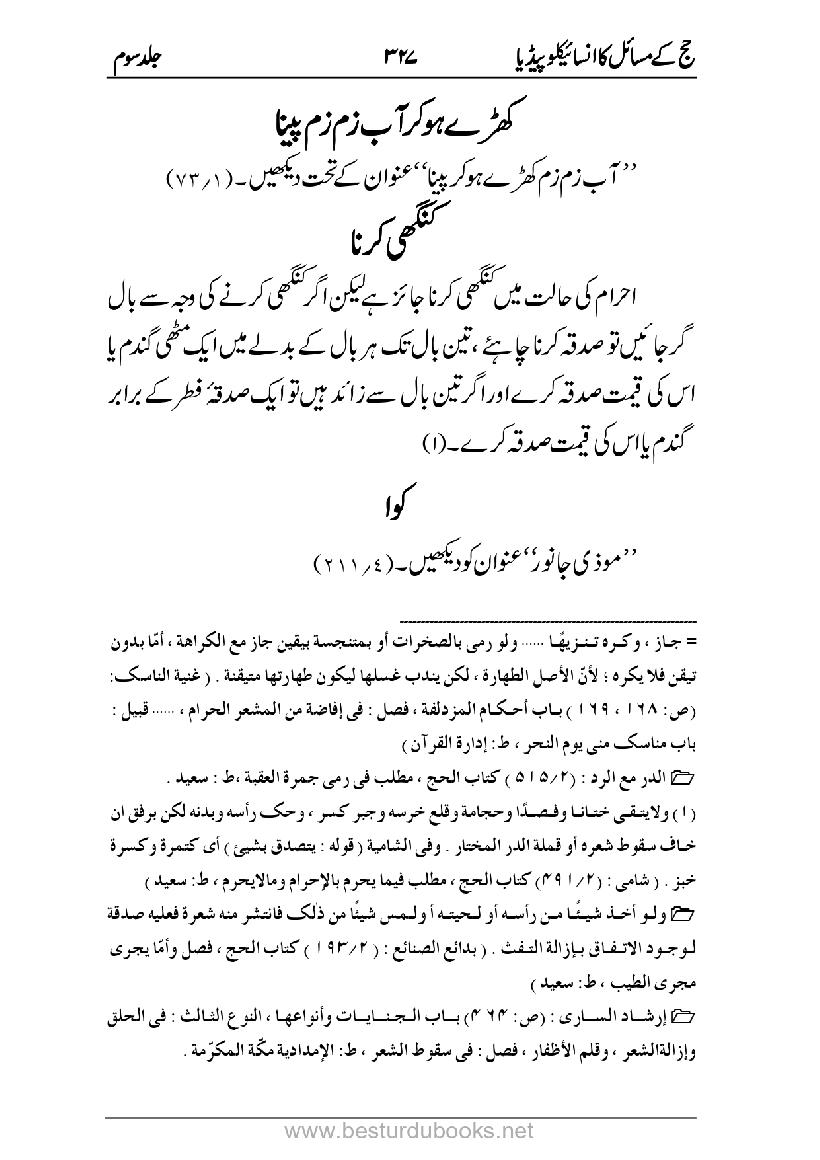 حج کے مسائل کا انسائیکلوپیڈیا ۳۲۷ جلد سوم
کھڑے ہو کر آب زم زم پینا
’’آب زم زم کھڑے ہو کر پینا‘‘ عنوان کے تحت دیکھیں۔ (۷۳/۱)
کنگھی کرنا
احرام کی حالت میں کنگھی کرنا جائز ہے لیکن اگر کنگھی کرنے کی وجہ سے بال
گر جائیں تو صدقہ کرنا چاہئے، تین بال تک ہر بال کے بدلے میں ایک مٹھی گندم یا
اس کی قیمت صدقہ کرے اور اگر تین بال سے زائد ہیں تو ایک صدقۂ فطر کے برابر
گندم یا اس کی قیمت صدقہ کرے۔ (۱)
کوا
’’موذی جانور‘‘ عنوان کو دیکھیں۔ (۲۱۱/۴)
= جاز ، وکرہ تنزیهًا ...... ولو رمی بالصخرات أو بمتنجسة بیقین جاز مع الکراهة ، أمّا بدون
تیقن فلا یکرہ ؛ لأنّ الأصل الطهارة ، لکن یندب غسلها لیکون طهارتها متیقنة . ( غنیة الناسک:
(ص: ۱۶۸ ، ۱۶۹ ) باب أحکام المزدلفة ، فصل : فی إفاضة من المشعر الحرام ، ...... قبیل :
باب مناسک منی یوم النحر ، ط: إدارة القرآن )
الدر مع الرد : (۵۱۵/۲ ) کتاب الحج ، مطلب فی رمی جمرة العقبة ،ط : سعید .
(۱ ) ولایتقی ختانا وفصدًا وحجامة وقلع خرسه وجبر کسر ، وحک رأسه وبدنه لکن برفق ان
خاف سقوط شعرہ أو قملة الدر المختار . وفی الشامیة ( قوله : یتصدق بشیئ ) أی کتمرة وکسرة
خبز . ( شامی : (۴۹۱/۲) کتاب الحج ، مطلب فیما یحرم بالإحرام ومالایحرم ، ط: سعید )
ولو أخذ شیئًا من رأسه أو لحیته أ ولمس شیئًا من ذٰلک فانتشر منه شعرة فعلیه صدقة
لوجود الاتفاق بإزالة التفث . ( بدائع الصنائع : (۱۹۳/۲ ) کتاب الحج ، فصل وأمّا یجری
مجری الطیب ، ط: سعید )
إرشاد الساری : (ص: ۴۶۴) باب الجنایات وأنواعها ، النوع الثالث : فی الحلق
وإزالةالشعر ، وقلم الأظفار ، فصل : فی سقوط الشعر ، ط: الإمدادیة مکّة المکرّمة .
www.besturdubooks.net